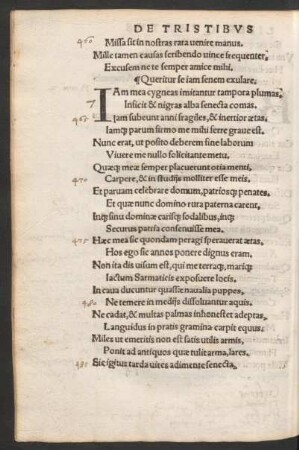 DE TRISTIBVS
460 Missa sit in nostras rara venire manus.
Mille tamen causas scribendo vince frequenter,
Excusem ne te semper amice mihi.
¶Queritur se iam senem exulare.
7 IAm mea cygneas imitantur tampora plumas,
Inficit & nigras alba senecta comas.
465 Iam subeunt anni fragiles, & inertior ætas,
Iamq; parum firmo me mihi ferre graue est.
Nunc erat, ut posito deberem fine laborum
Viuere me nullo solicitante metu.
Quæq; meæ semper placuerunt otia menti,
470 Carpere, & in studijs molliter esse meis.
Et paruam celebrare domum, patriosq; penates.
Et quæ nunc domino rura paterna carent,
Inq; sinu dominæ carisq; sodalibus, inq;
Securus patria consenuisse mea.
475 Hæc mea sic quondam peragi sperauerat ætas,
Hos ego sic annos ponere dignus eram.
Non ita dis uisum est, qui me terraq, mariq;
Iactum Sarmaticis exposuere locis.
In caua ducuntur quassæ naualia puppes,
480 Ne temere in medijs dissoluantur aquis.
Ne cadat, & multas palmas inhonestet adeptas,
Languidus in pratis gramina carpit equus.
Miles ut emeritis non est satis utilis armis,
Ponit ad antiquos quæ tulit arma, lares.
485 Sic igitur tarda uires adimente senecta,